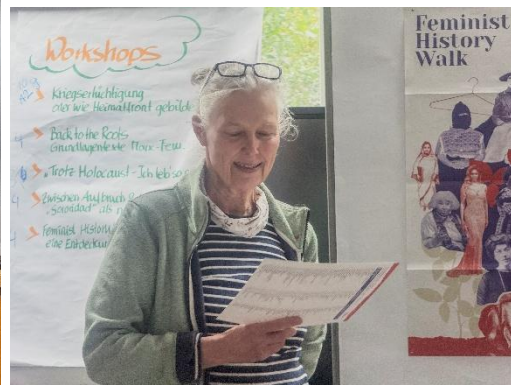 Workshops
Kriegsertüchtigung
oder wie Heimatfront gebilde
Back to the Roots
Grundlagentexte Marx-Fem.
"Trotz Holocaust - Ich leb so
Zwischen Aufbruch
"Sororidad" als n
Feminist History
eine Entdeckun
Feminist
History
Walk